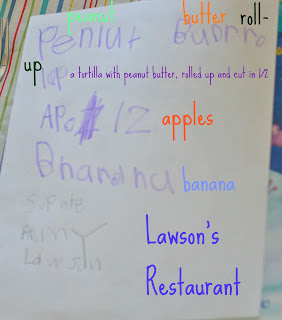 peanut butter roll-
PENiut Budrro
up a tortilla with peanut butter, rolled up and cut in 1/2
APolz apples
Bhanana banana
Sophie
Amy Lawson's
Lawson Restaurant